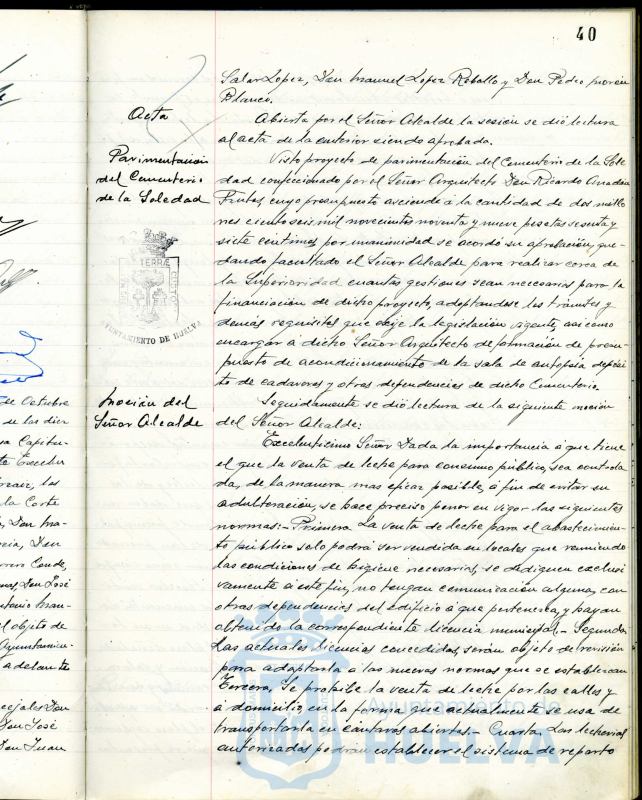 40
Salar Lopez, Don Manuel Lopez Rebollo y Don Pedro Morón
Blanco.
Acta
Abierta por el Señor Alcalde la sesión se dió lectura
al acta de la anterior siendo aprobada.
Pavimentación
del Cementerio
de la Soledad
Visto proyecto de pavimentación del Cementerio de la Sole
dad confeccionado por el Señor Arquitecto Don Ricardo Anadon
Frutos cuyo presupuesto asciende á la cantidad de dos millo
nes ciento seis mil novecientos noventa y nueve pesetas sesenta y
siete centimos por unanimidad se acordó su aprobación, que-
dando facultado el Señor Alcalde para realizar cerca de
la Superioridad cuantas gestiones sean necesarias para la
financiación de dicho proyecto, adoptandose los trámites y
demás requisitos que exije la legislación vigente, asi como
encargar á dicho Señor Arquitecto de formación de presu-
puesto de acondicionamiento de la sala de autopsia depósi
to de cadaveres y otras dependencias de dicho Cementerio.
TERRÆ
AYUNTAMIENTO DE HUELVA
Moción del
Señor Alcalde
Seguidamente se dió lectura de la siguiente moción
del Señor Alcalde:
Excelentisimo Señor Dada la importancia á que tiene
el que la venta de leche para consumo público, sea controla
da, de la manera mas eficaz posible, á fin de evitar su
adulteración, se hace preciso poner en vigor las siguientes
normas:- Primera La venta de leche para el abastecimien-
to público solo podrá ser vendida en locales que reuniendo
las condiciones de higiene necesarias, se dediquen exclusi
vamente á este fin, no tengan comunicación alguna, con
otras dependencias del Edificio á que pertenezca, y hayan
obtenido la correspondiente licencia municipal.- Segunda
Las actuales licencias concedidas, serán objeto de revisión
para adaptarla á las nuevas normas que se establezcan
Tercera, Se prohibe la venta de leche por las calles y
á domicilio, en la forma que actualmente se usa de
transportarla en cántaras abiertas.- Cuarta, Las lecherías
autorizadas podrán establecer el sistema de reparto
de Octubre
de las diez
sa Capitu-
la Corte
Don Ma-
Don
Conde,
Don José
Man-
el objeto de
Ayuntamien-
adelante
cejales Don
Don José
Don Juan
Ayuntamiento de
HUELVA